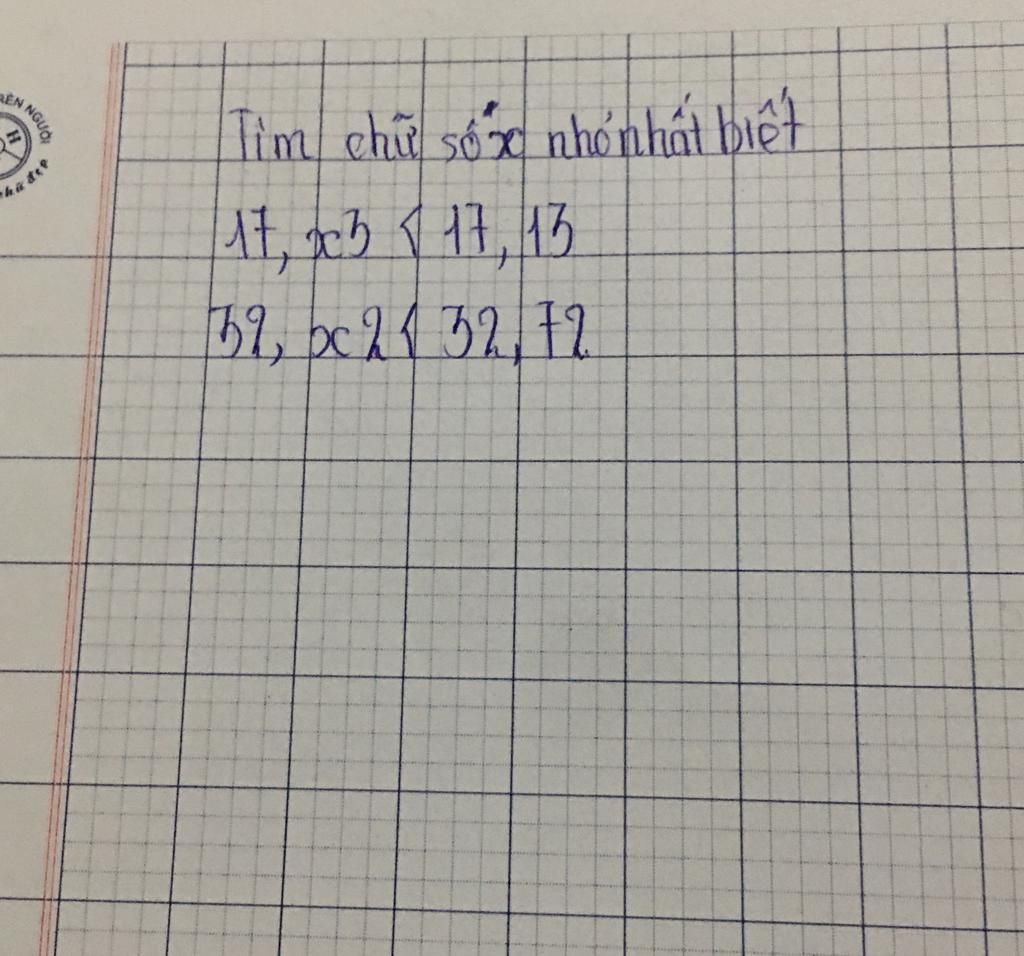 RÊN NGƯỜI
H
chữ đẹp
Tìm chữ số x nhỏ nhất biết
17, x3 < 17, 13
32, x2 < 32, 72